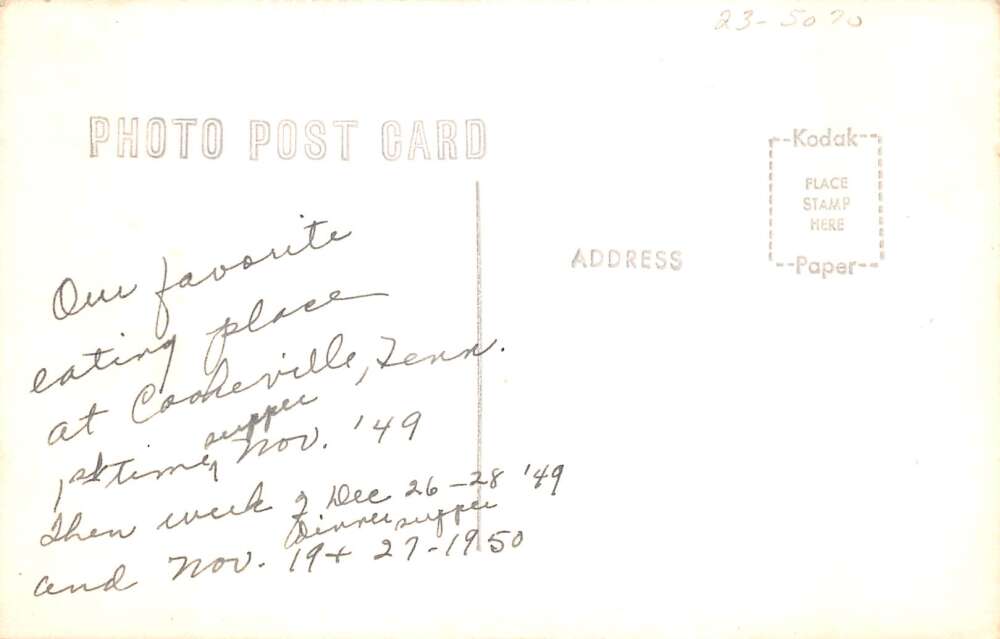 23-5070
PHOTO POST CARD
Kodak
PLACE
STAMP
HERE
Paper
ADDRESS
Our favorite
eating place
at Cookeville, Tenn.
supper
1st time, Nov. '49
Then week of Dec 26-28 '49
Dinner supper
and Nov. 19+ 27-1950